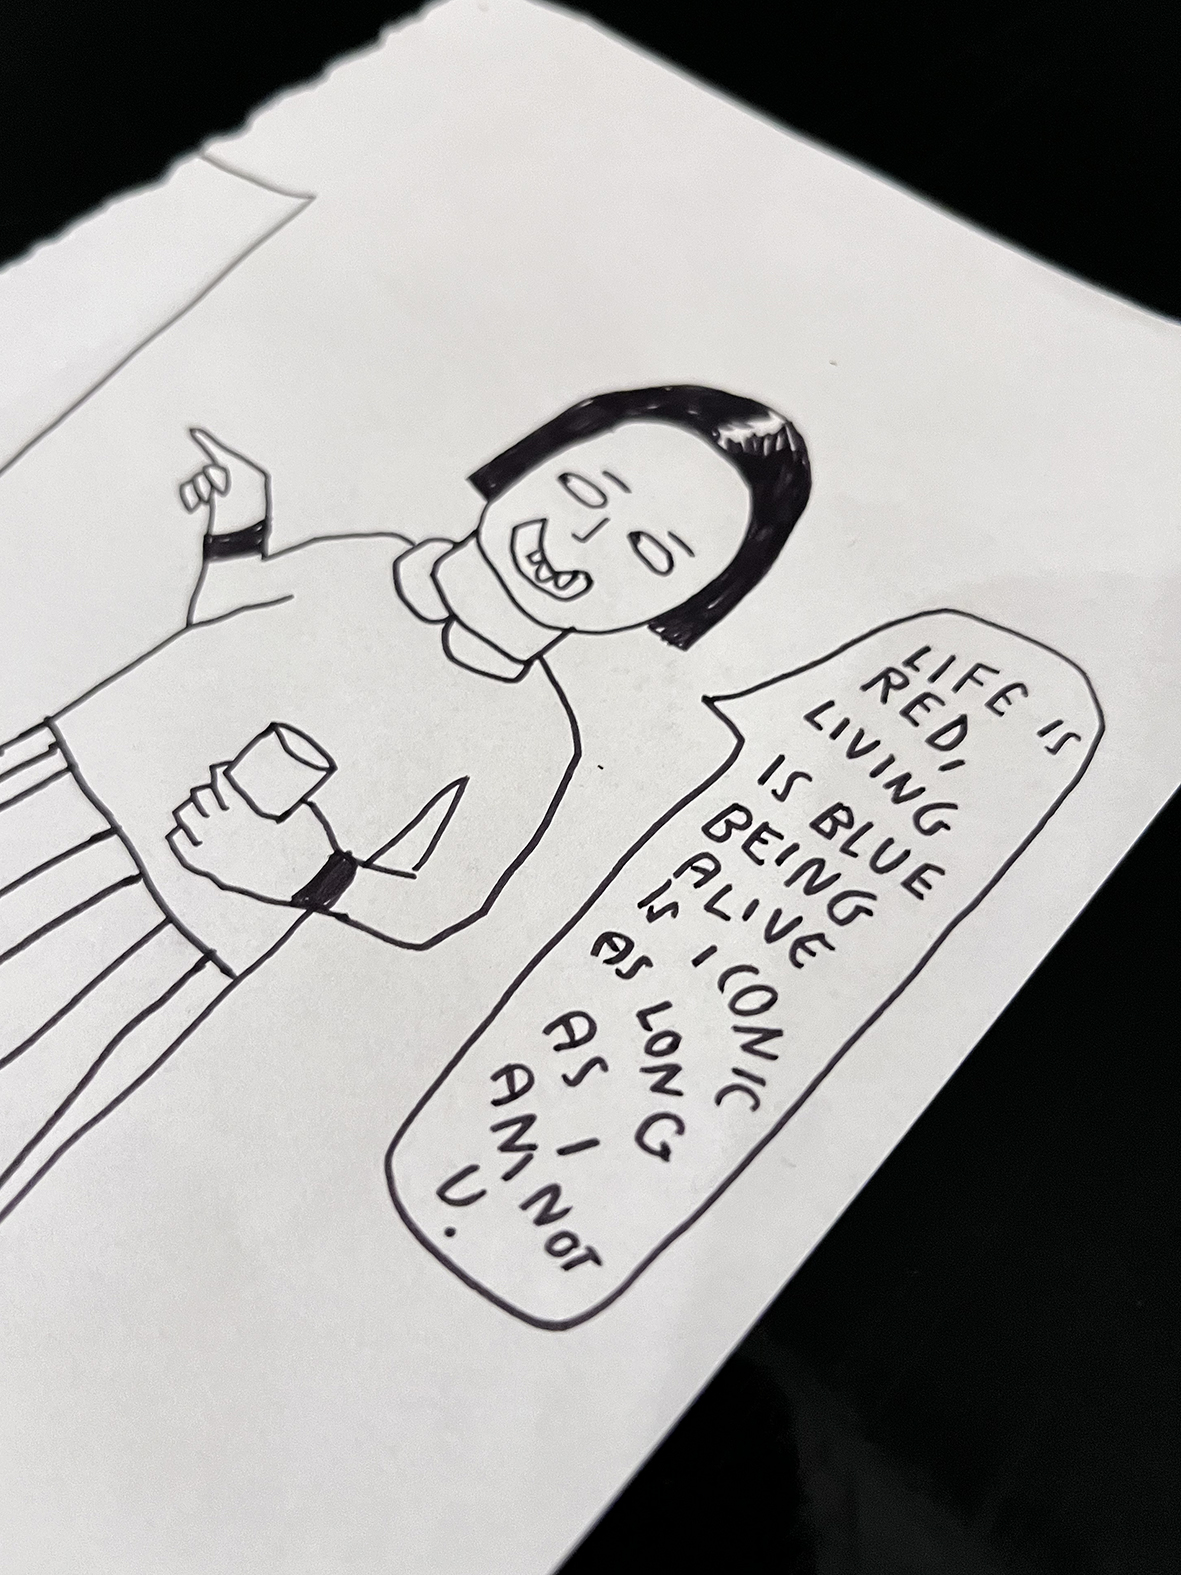 LIFE IS
RED,
LIVING
IS BLUE
BEING
ALIVE
IS ICONIC
AS LONG
AS I
AM NOT
U.